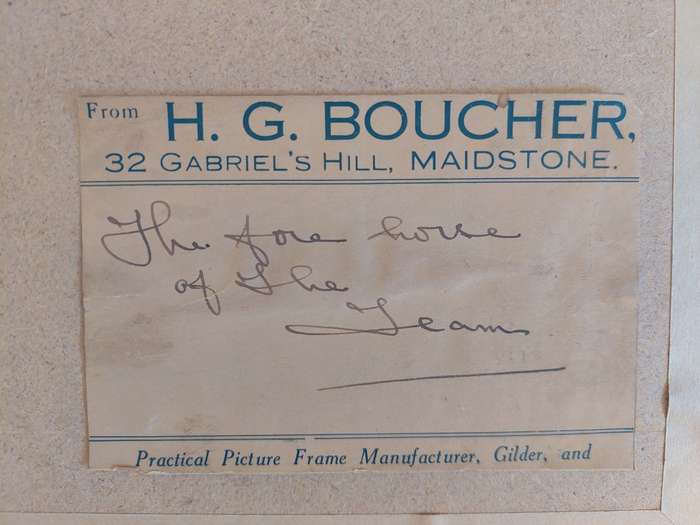 From H. G. BOUCHER,
32 GABRIEL'S HILL, MAIDSTONE.
The fore horse
of the
Team
Practical Picture Frame Manufacturer, Gilder, and